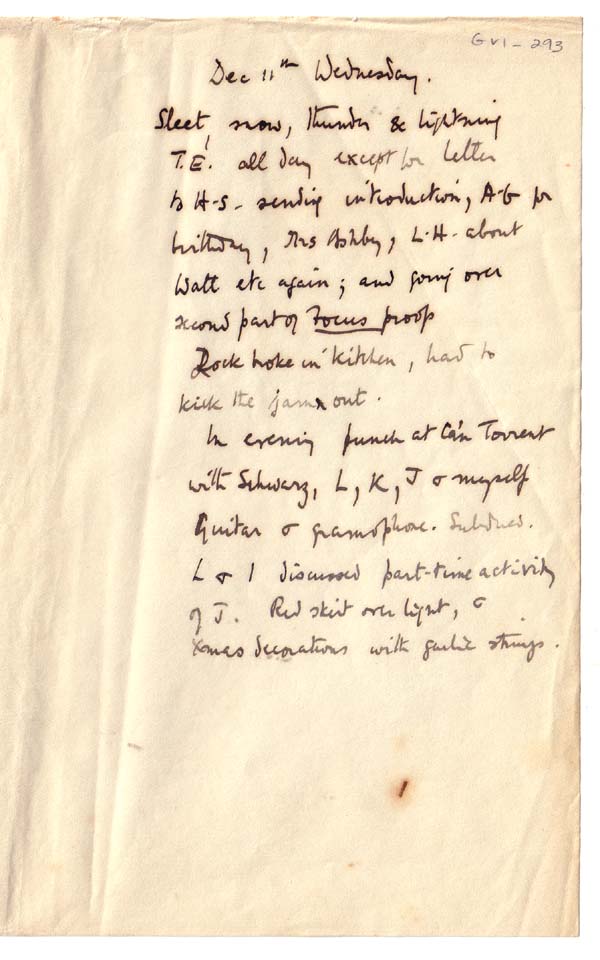 GVI - 293
Dec 11th Wednesday.
Sleet, snow, thunder & lightning
T.E! all day except for letter
to H-S - sending introduction, A-G for
birthday, Mrs Ashby, L.H. about
Watt etc again; and going over
second part of Focus proofs
broke in kitchen, had to
kick the out.
In evening punch at Ca'n Torrent
with Schwarz, L, K, J & myself
Guitar & gramophone. Subdued.
L & I discussed part-time activity
of J. Red skirt over light, &
Xmas decorations with garlic strings.